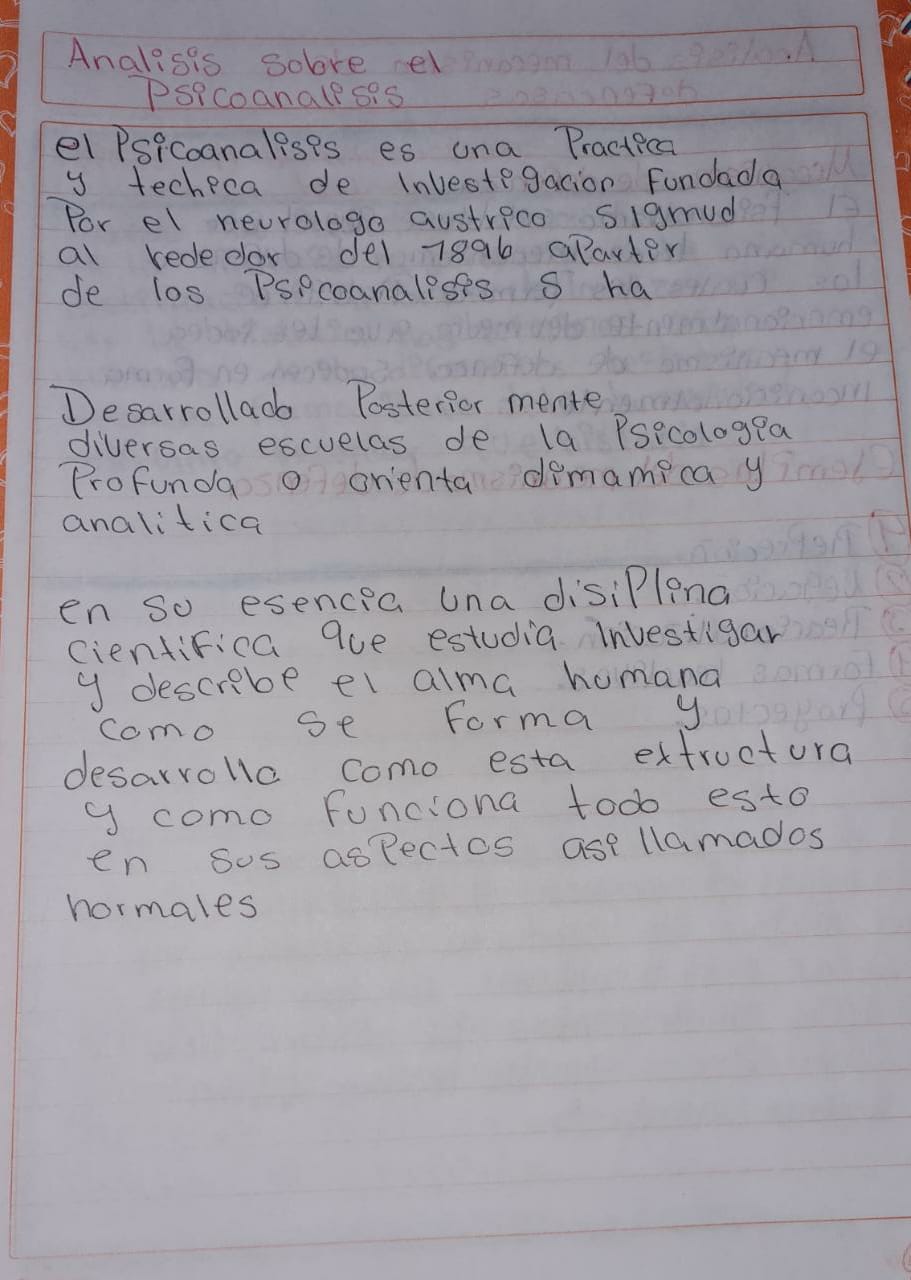 Analisis sobre el
Psicoanalisis
el Psicoanalisis es una Practica
y techica de Investigacion Fundada
Por el neurologo austrico Sigmud
al rededor del 1896 aPartir
de los Psicoanalisis S ha
Desarrollado Posterior mente
diversas escuelas de la Psicologia
Profunda o orienta dimamica y
analitica
en su esencia una disiPlina
cientifica que estudia investigar
y describe el alma humana
como se Forma y
desarrolla como esta extructura
y como Funciona todo esto
en sus asPectos asi llamados
normales